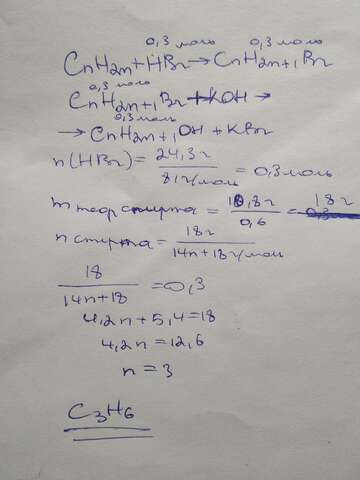 0,3 моль 0,3 моль
CnH2n + HBr → CnH2n+1Br
0,3 моль
CnH2n+1Br + KOH →
0,3 моль
→ CnH2n+1OH + KBr
n(HBr) = 24,3 г / 81 г/моль = 0,3 моль
m теор спирта = 10,8 г / 0,6 = 18 г
n спирта = 18 г / 14n+18 г/моль
18 / 14n+18 = 0,3
4,2n + 5,4 = 18
4,2n = 12,6
n = 3
C3H6